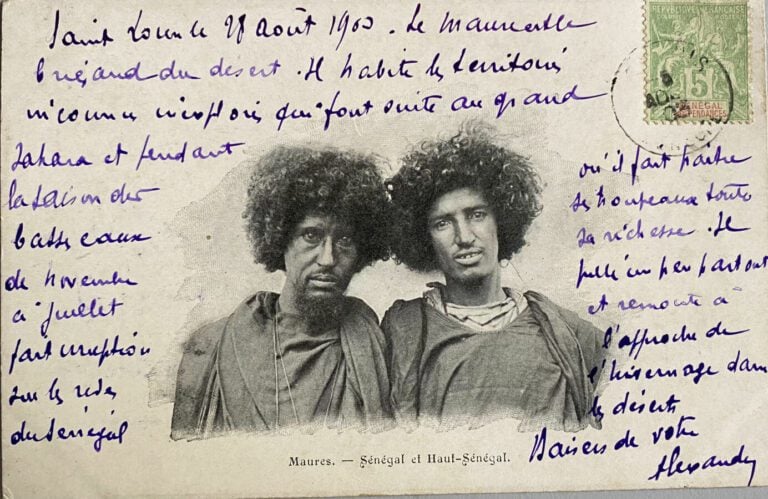 Saint Louis le 28 Août 1903. Le Maure est le
brigand du désert. Il habite les territoires
inconnus inexplorés qui font suite au grand
Sahara et pendant
la saison des
basses eaux
de novembre
à juillet
fait irruption
sur les rives
du Sénégal
où il fait paître
ses troupeaux toute
sa richesse. Il
pille un peu partout
et remonte à
l'approche de
l'hivernage dans
les déserts
Baisers de votre
Alexandre
RÉPUBLIQUE FRANÇAISE
5
SÉNÉGAL
DÉPENDANCES
Maures. — Sénégal et Haut-Sénégal.